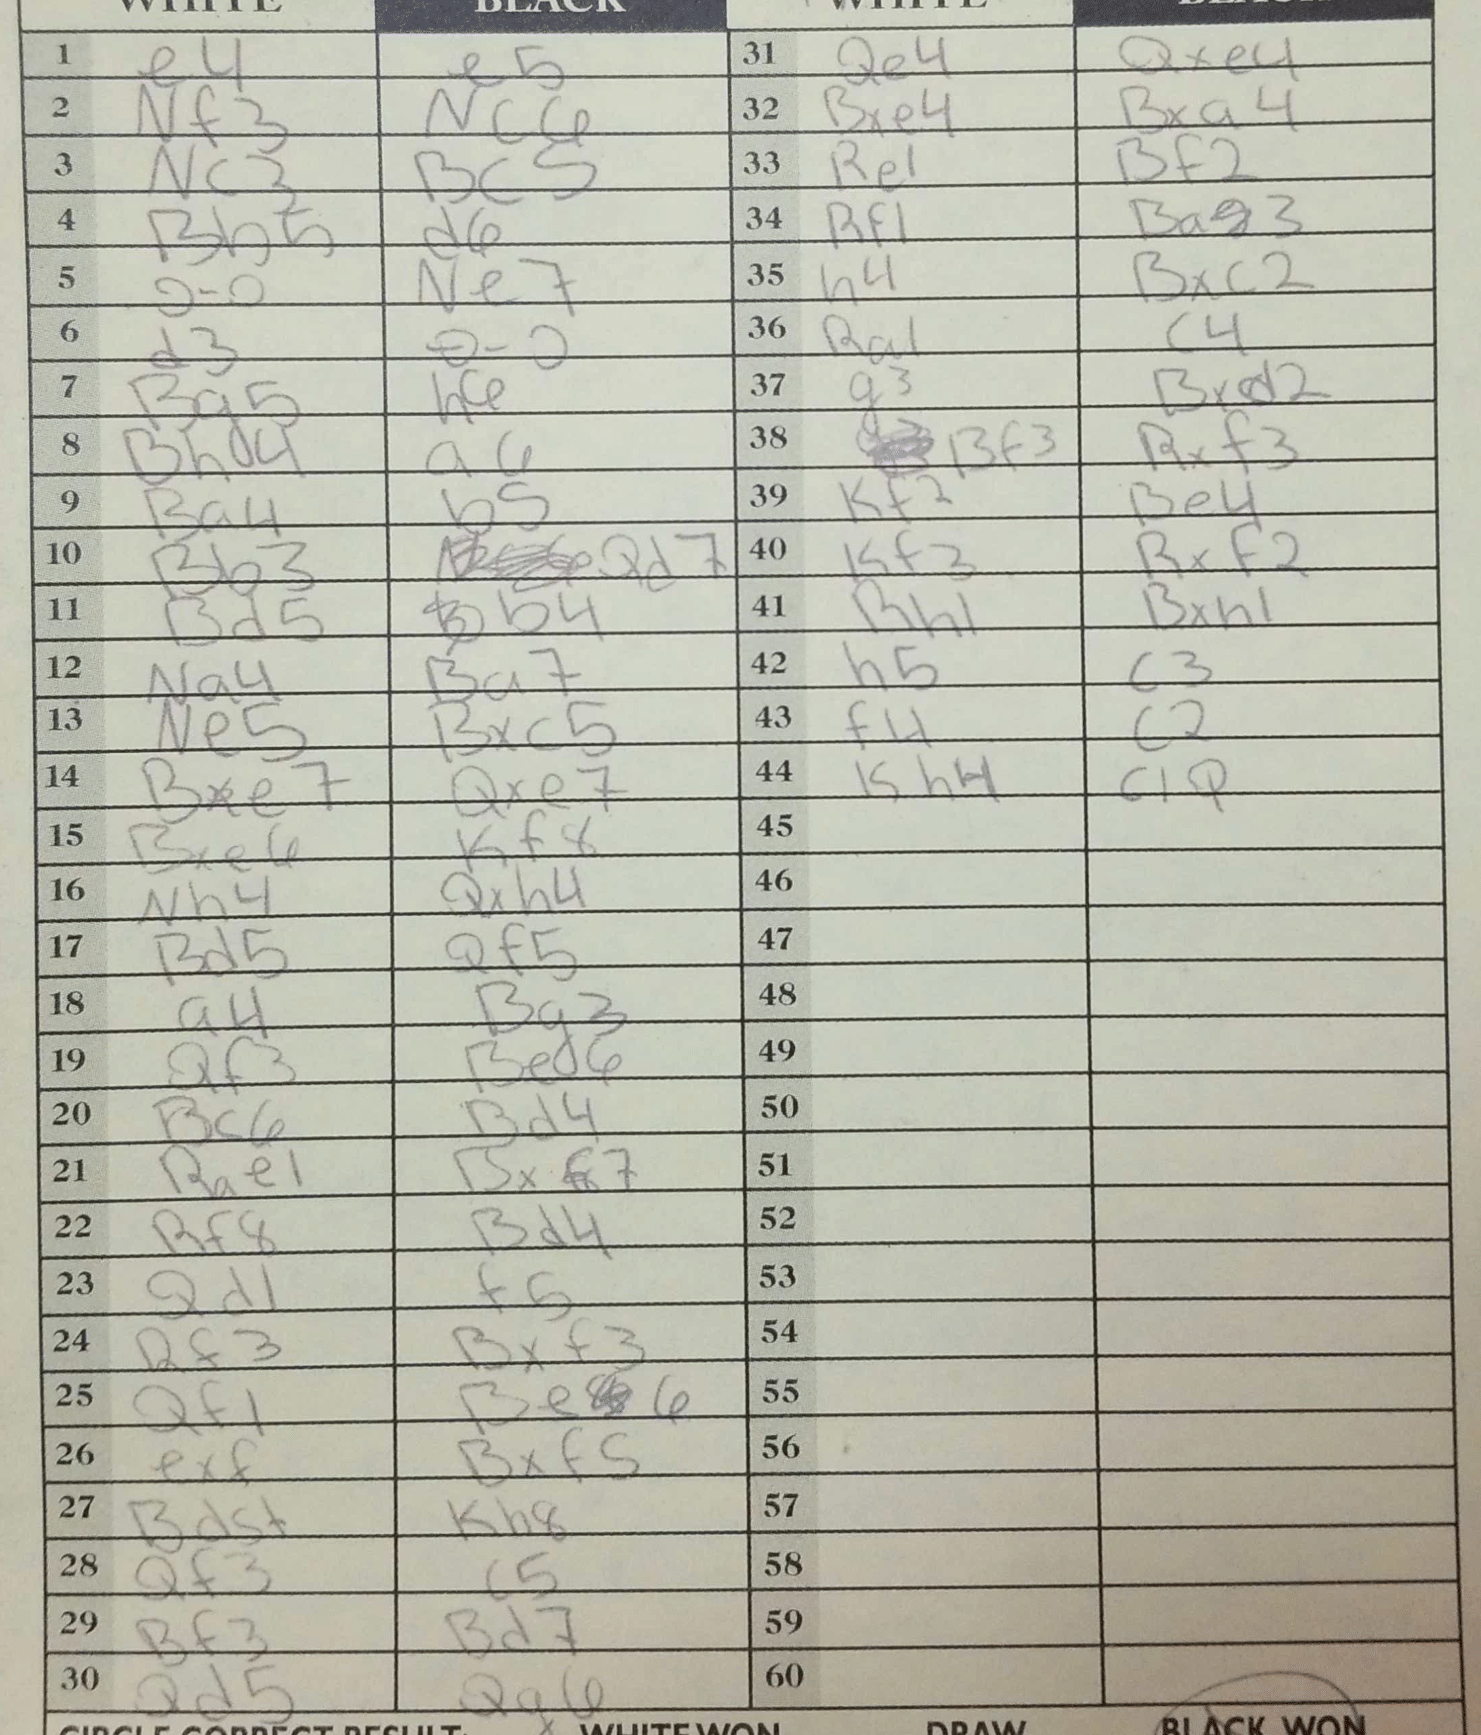 WHITE BLACK WHITE BLACK
1 e4 e5 31 Qe4 Qxe4
2 Nf3 Nc6 32 Bxe4 Bxa4
3 Nc3 Bc5 33 Re1 Bf2
4 Bb5 d6 34 Rf1 Bag3
5 0-0 Ne7 35 h4 Bxc2
6 d3 0-0 36 Ra1 c4
7 Bg5 h6 37 g3 Bxd2
8 Bh4 a6 38 Bf3 Rxf3
9 Ba4 b5 39 Kf2 Be4
10 Bb3 Qd7 40 Kf3 Rxf2
11 Bd5 b4 41 Rh1 Bxh1
12 Na4 Ba7 42 h5 c3
13 Ne5 Bxc5 43 f4 c2
14 Bxe7 Qxe7 44 Kh4 c1Q
15 Bxe6 Kf8 45
16 Nh4 Qxh4 46
17 Bd5 Qf5 47
18 a4 Bg3 48
19 Qf3 Bed6 49
20 Bc6 Bd4 50
21 Rae1 Bxf7 51
22 Rf8 Bd4 52
23 Qd1 f5 53
24 Rf3 Bxf3 54
25 Qf1 Be6 55
26 exf Bxf5 56
27 Bd5t Kh8 57
28 Qf3 c5 58
29 Bf3 Bd7 59
30 Qd5 Qg6 60
CIRCLE CORRECT RESULT: WHITE WON DRAW BLACK WON